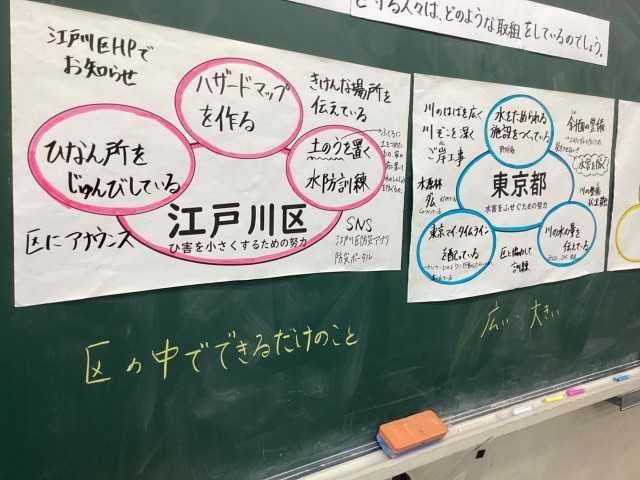 する人々は、どのような取組をしているのでしょう。
江戸川区HPで
お知らせ
ハザードマップ
を作る
きけんな場所を
伝えている
ひなん所を
じゅんびしている
土のうを置く
水防訓練
江戸川区
ひ害を小さくするための努力
区にアナウンス
SNS
江戸川区防災アプリ
防災ポータル
区の中でできるだけのこと
川のはばを広く
川ぞこを深く
ご岸工事
水をためられる
施設をつくっている
計画の整備
水害を防ぐ
水源林
東京都
水害をふせぐための努力
東京マイ・タイムライン
を配っている
区と協力して
訓練
川の水の量を
伝えている
川の整備
広い・大きい